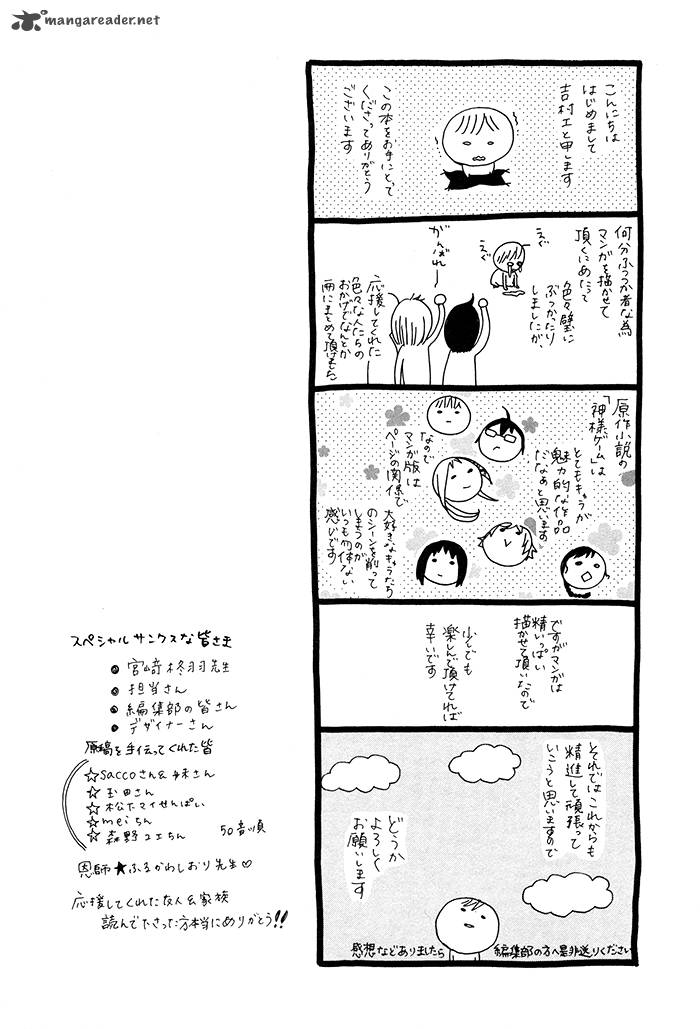 mangareader.net
こんにちは
はじめまして
吉村エと申します
この本をお手にとって
くださってありがとう
ございます
何分ふつつか者な為
マンガを描かせて
頂くにあたって
色々壁に
ぶつかったり
しましたが、
えぐ
えぐ
がんばれー
応援してくれた
色々な人たちの
おかげでなんとか
冊にまとめて頂けました
原作小説の
「神様ゲーム」は
とてもキャラが
魅力的な作品
だなぁと思います
なので
マンガ版は
ページの関係で
大好きなキャラたち
のシーンを削って
しまうのが
いつも勿体ない
感じです
ですがマンガは
精いっぱい
描かせて頂いたので
少しでも
楽しんで頂けてれば
幸いです
それではこれからも
精進して頑張って
いこうと思いますので
どうか
よろしく
お願いします
感想などありましたら 編集部の方へ是非送りください
スペシャルサンクスな皆さま
● 宮﨑柊羽先生
● 担当さん
● 編集部の皆さん
● デザイナーさん
原稿を手伝ってくれた皆
☆saccoさん&妹さん
☆玉田さん
☆松下マイせんぱい
☆meiちん
☆森野ユエちん 50音順
恩師★ふるかわしおり先生♡
応援してくれた友人&家族
読んで下さった方本当にありがとう!!